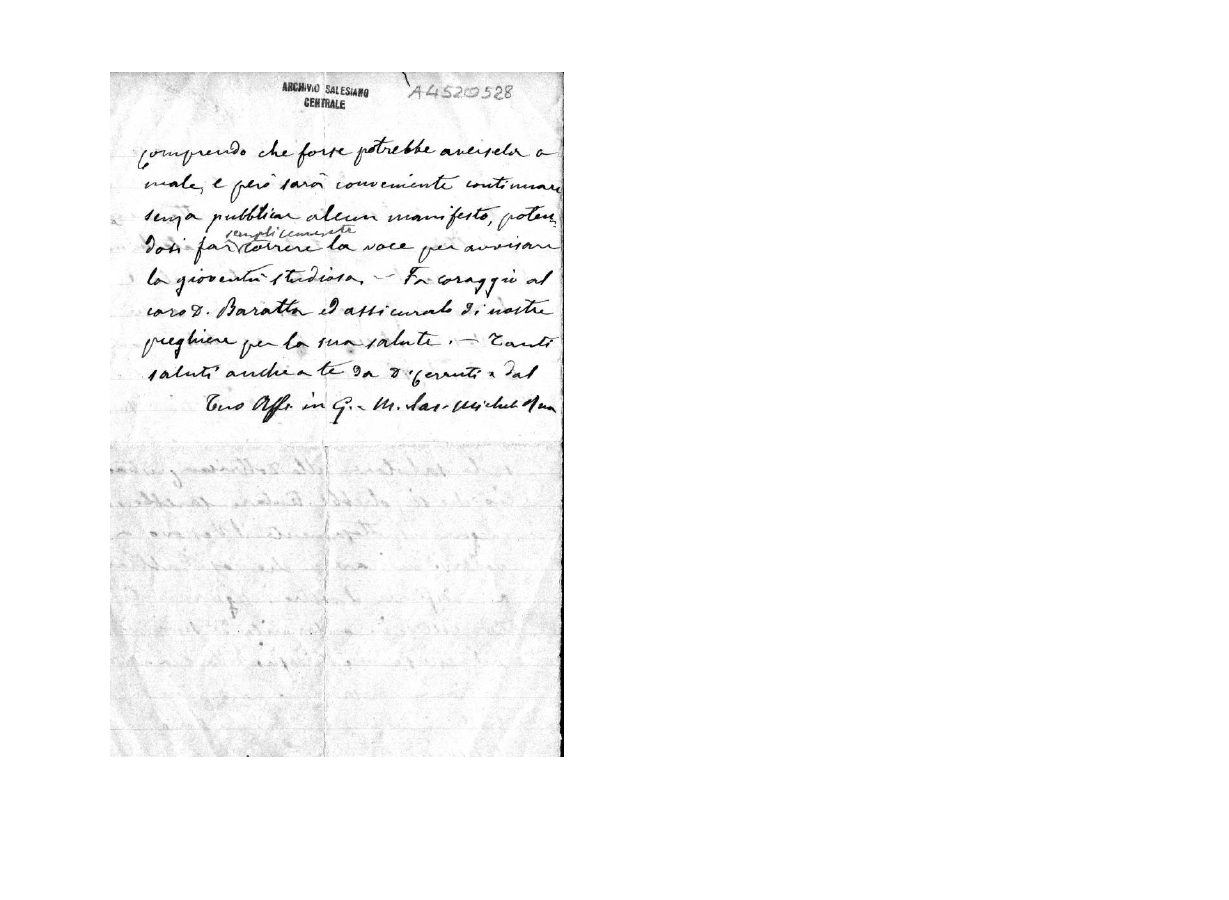 ARCHIVIO SALESIANO
CENTRALE
A4520528
comprendo che forse potrebbe aversela a
male, e però sarà conveniente continuare
senza pubblicar alcun manifesto, poten
dosi far semplicemente correre la voce per avvisare
la gioventù studiosa. — Fa coraggio al
caro D. Baratta ed assicuralo di nostre
preghiere per la sua salute. — Tanti
saluti anche a te da D. Cerruti e dal
Tuo Aff. in G. M. Sac. Michele Rua